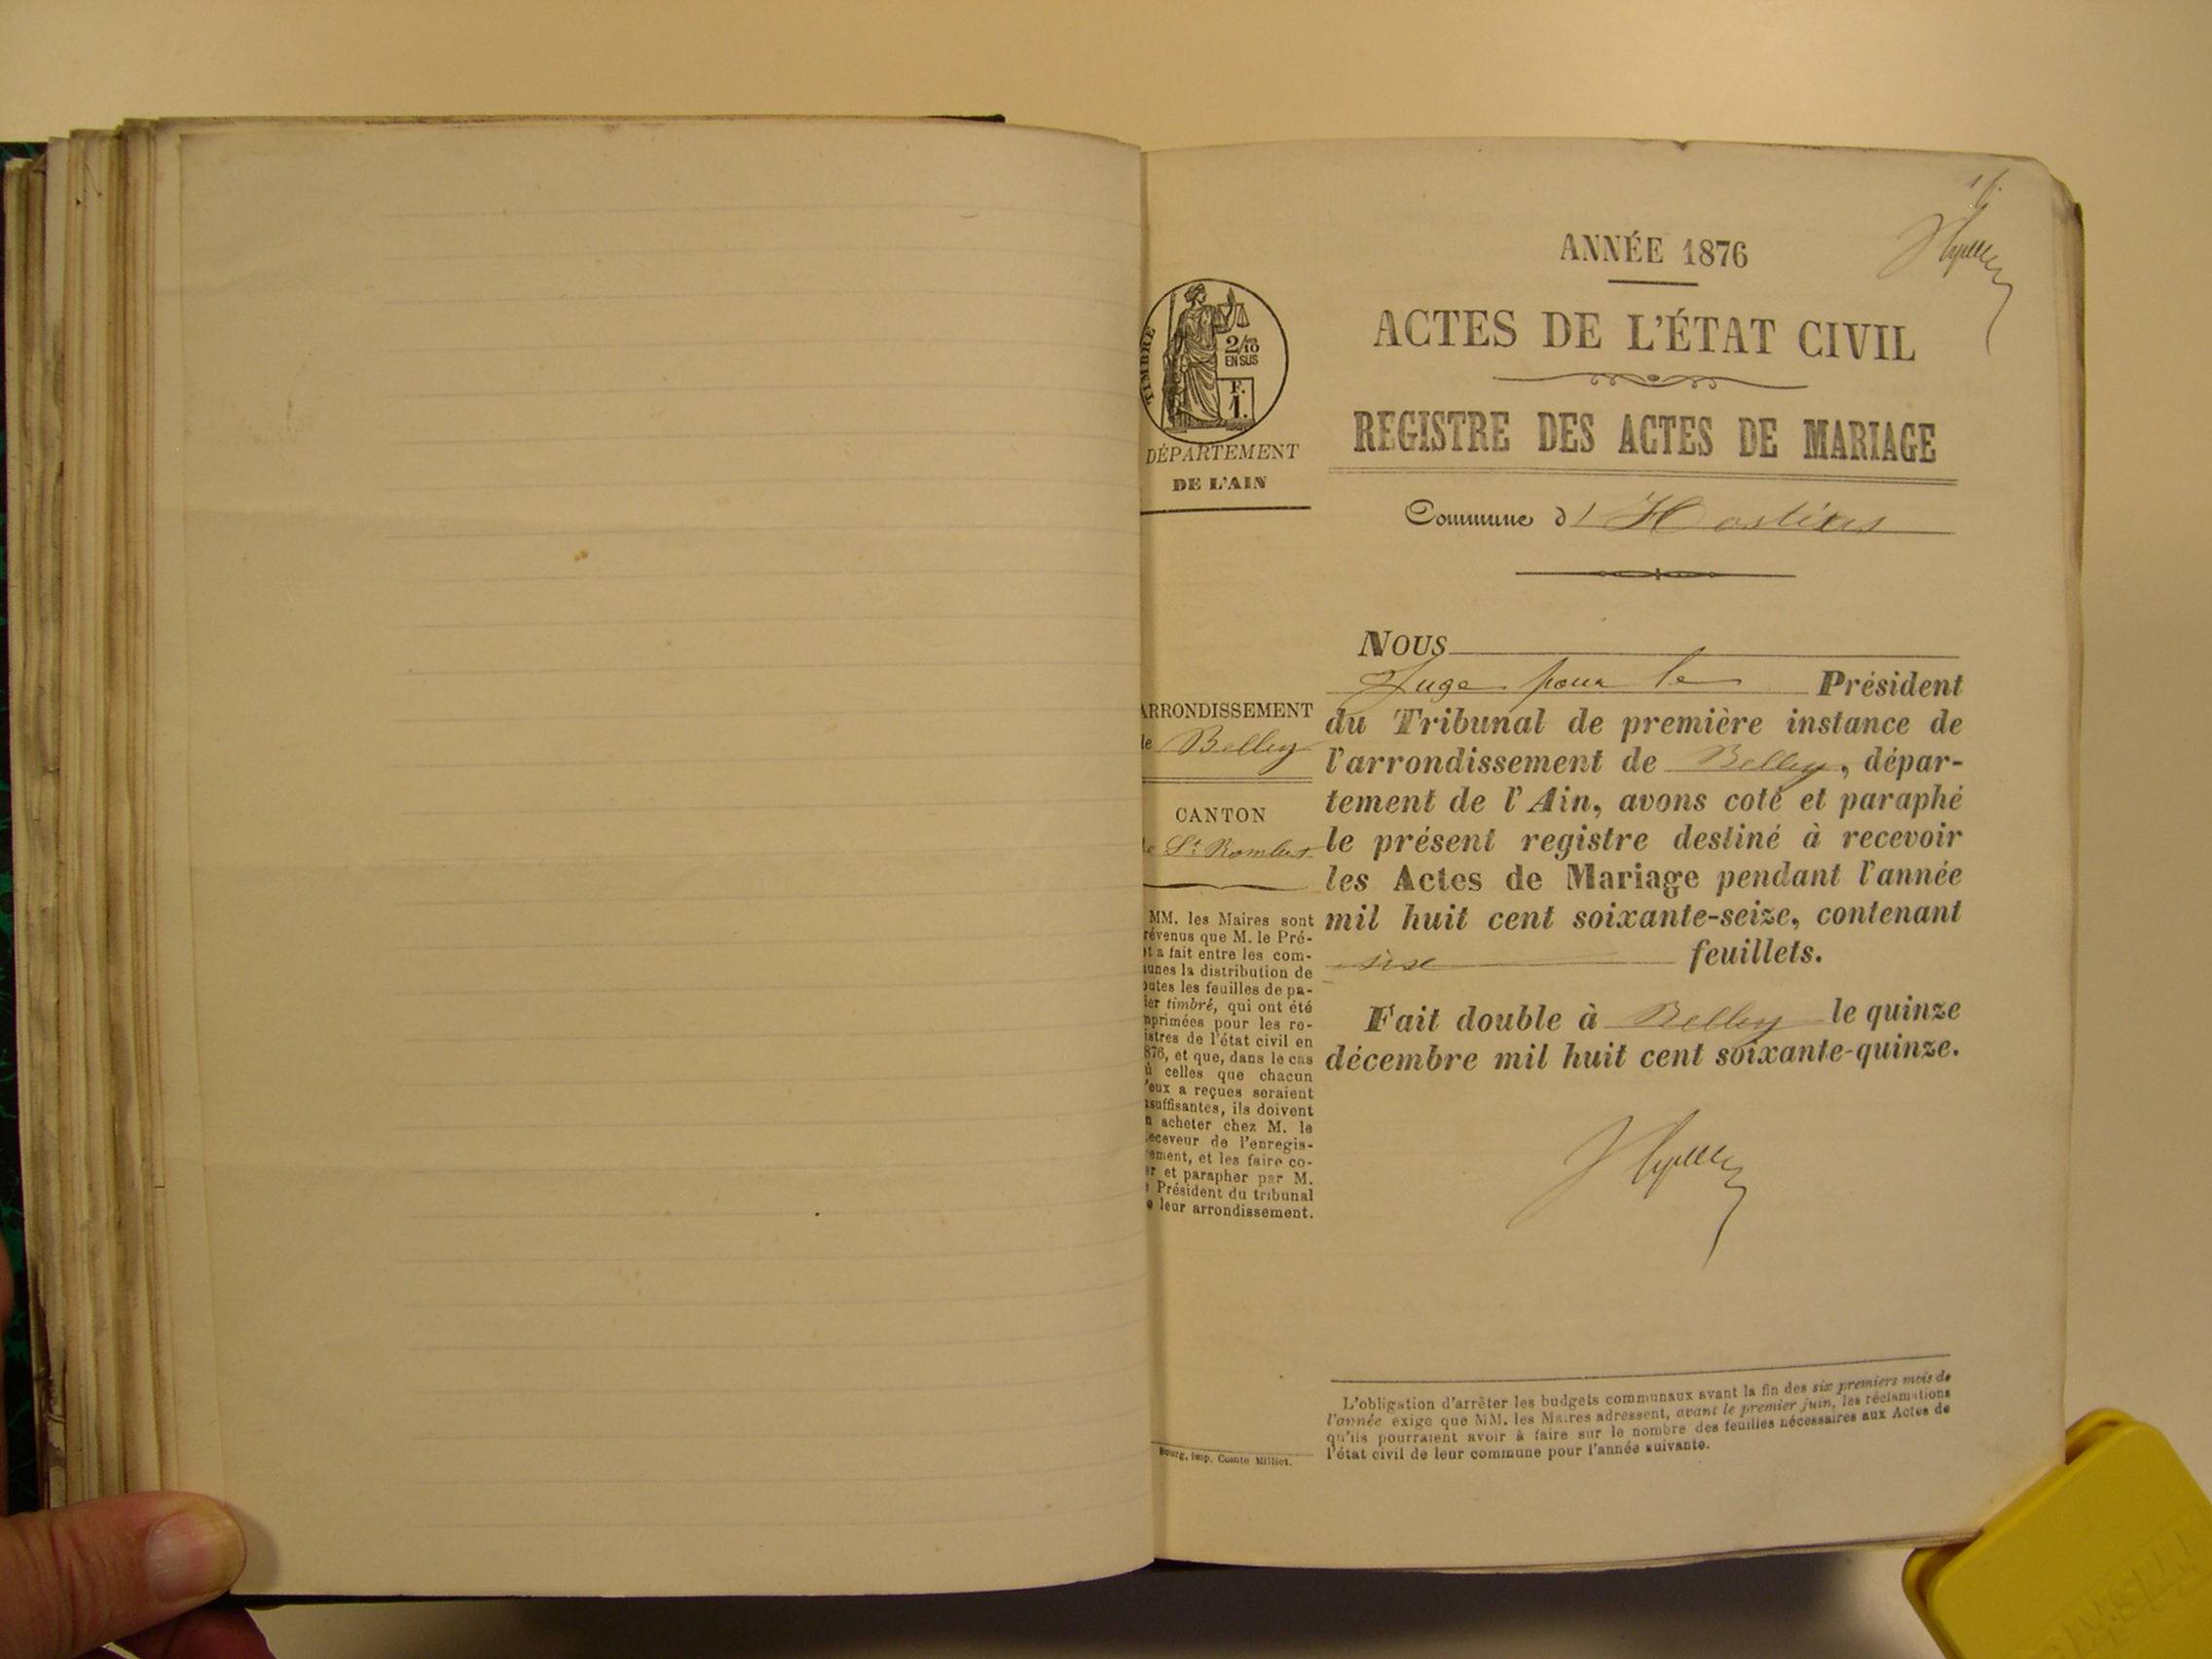 ANNÉE 1876
ACTES DE L'ÉTAT CIVIL
REGISTRE DES ACTES DE MARIAGE
Commune d'Hostias
TIMBRE
2/10
EN SUS
F.
1.
DÉPARTEMENT
DE L'AIN
ARRONDISSEMENT
de Belley
CANTON
de St Rambert
MM. les Maires sont
révenus que M. le Pré-
et a fait entre les com-
unes la distribution de
outes les feuilles de pa-
ier timbré, qui ont été
mprimées pour les re-
istres de l'état civil en
876, et que, dans le cas
ù celles que chacun
'eux a reçues seraient
nsuffisantes, ils doivent
n acheter chez M. le
eceveur de l'enregis-
rement, et les faire co-
er et parapher par M.
e Président du tribunal
e leur arrondissement.
Bourg, imp. Comte Milliet.
NOUS
Juge pour le Président
du Tribunal de première instance de
l'arrondissement de Belley, dépar-
tement de l'Ain, avons coté et paraphé
le présent registre destiné à recevoir
les Actes de Mariage pendant l'année
mil huit cent soixante-seize, contenant
six feuillets.
Fait double à Belley le quinze
décembre mil huit cent soixante-quinze.
L'obligation d'arrêter les budgets communaux avant la fin des six premiers mois de
l'année exige que MM. les Maires adressent, avant le premier juin, les réclamations
qu'ils pourraient avoir à faire sur le nombre des feuilles nécessaires aux Actes de
l'état civil de leur commune pour l'année suivante.